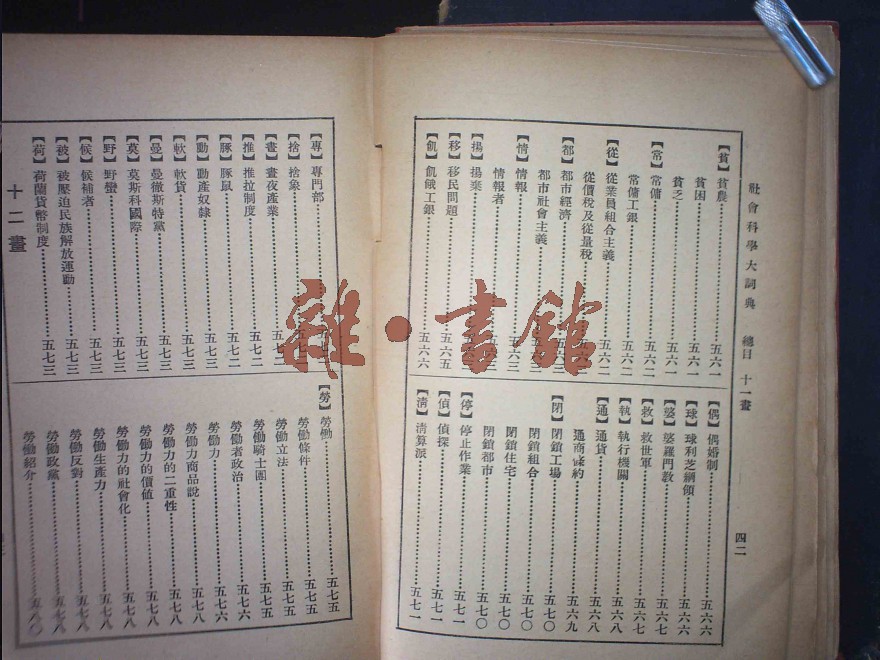 社會科學大詞典 總目 十一畫 四二
【貧】貧農……五六一
貧困……五六一
貧乏……五六一
【常】常傭……五六二
常傭工銀……五六二
【從】從業員組合主義……五六二
從價稅及從量稅
【都】都市經濟
都市社會主義
【情】情報
情報者
【揚】揚棄
【移】移民問題……五六五
【飢】飢餓工銀……五六六
【偶】偶婚制……五六六
【球】球利芝綱領……五六六
【婆】婆羅門教……五六七
【救】救世軍……五六七
【執】執行機關……五六八
【通】通貨……五六八
通商條約……五六九
【閉】閉鎖工場……五七〇
閉鎖組合……五七〇
閉鎖住宅……五七〇
閉鎖都市……五七〇
【停】停止作業……五七一
【偵】偵探……五七一
【清】清算派……五七一
【專】專門部
【捨】捨象
【晝】晝夜產業
【推】推拉制度
【豚】豚鼠……五七二
【動】動產奴隸……五七二
【軟】軟貨……五七三
【曼】曼徹斯特黨……五七三
【莫】莫斯科國際……五七三
【野】野蠻……五七三
【候】候補者……五七三
【被】被壓迫民族解放運動……五七三
【荷】荷蘭貨幣制度……五七三
十二畫
【勞】勞働……五七五
勞働條件……五七五
勞働立法……五七五
勞働騎士團……五七五
勞働者政治……五七六
勞働力……五七六
勞働力商品說……五七八
勞働力的二重性……五七八
勞働力的價値……五七八
勞働力的社會化……五七八
勞働生產力……五七八
勞働反對……五七八
勞働政黨……五七八
勞働紹介……五八〇
雜·書館